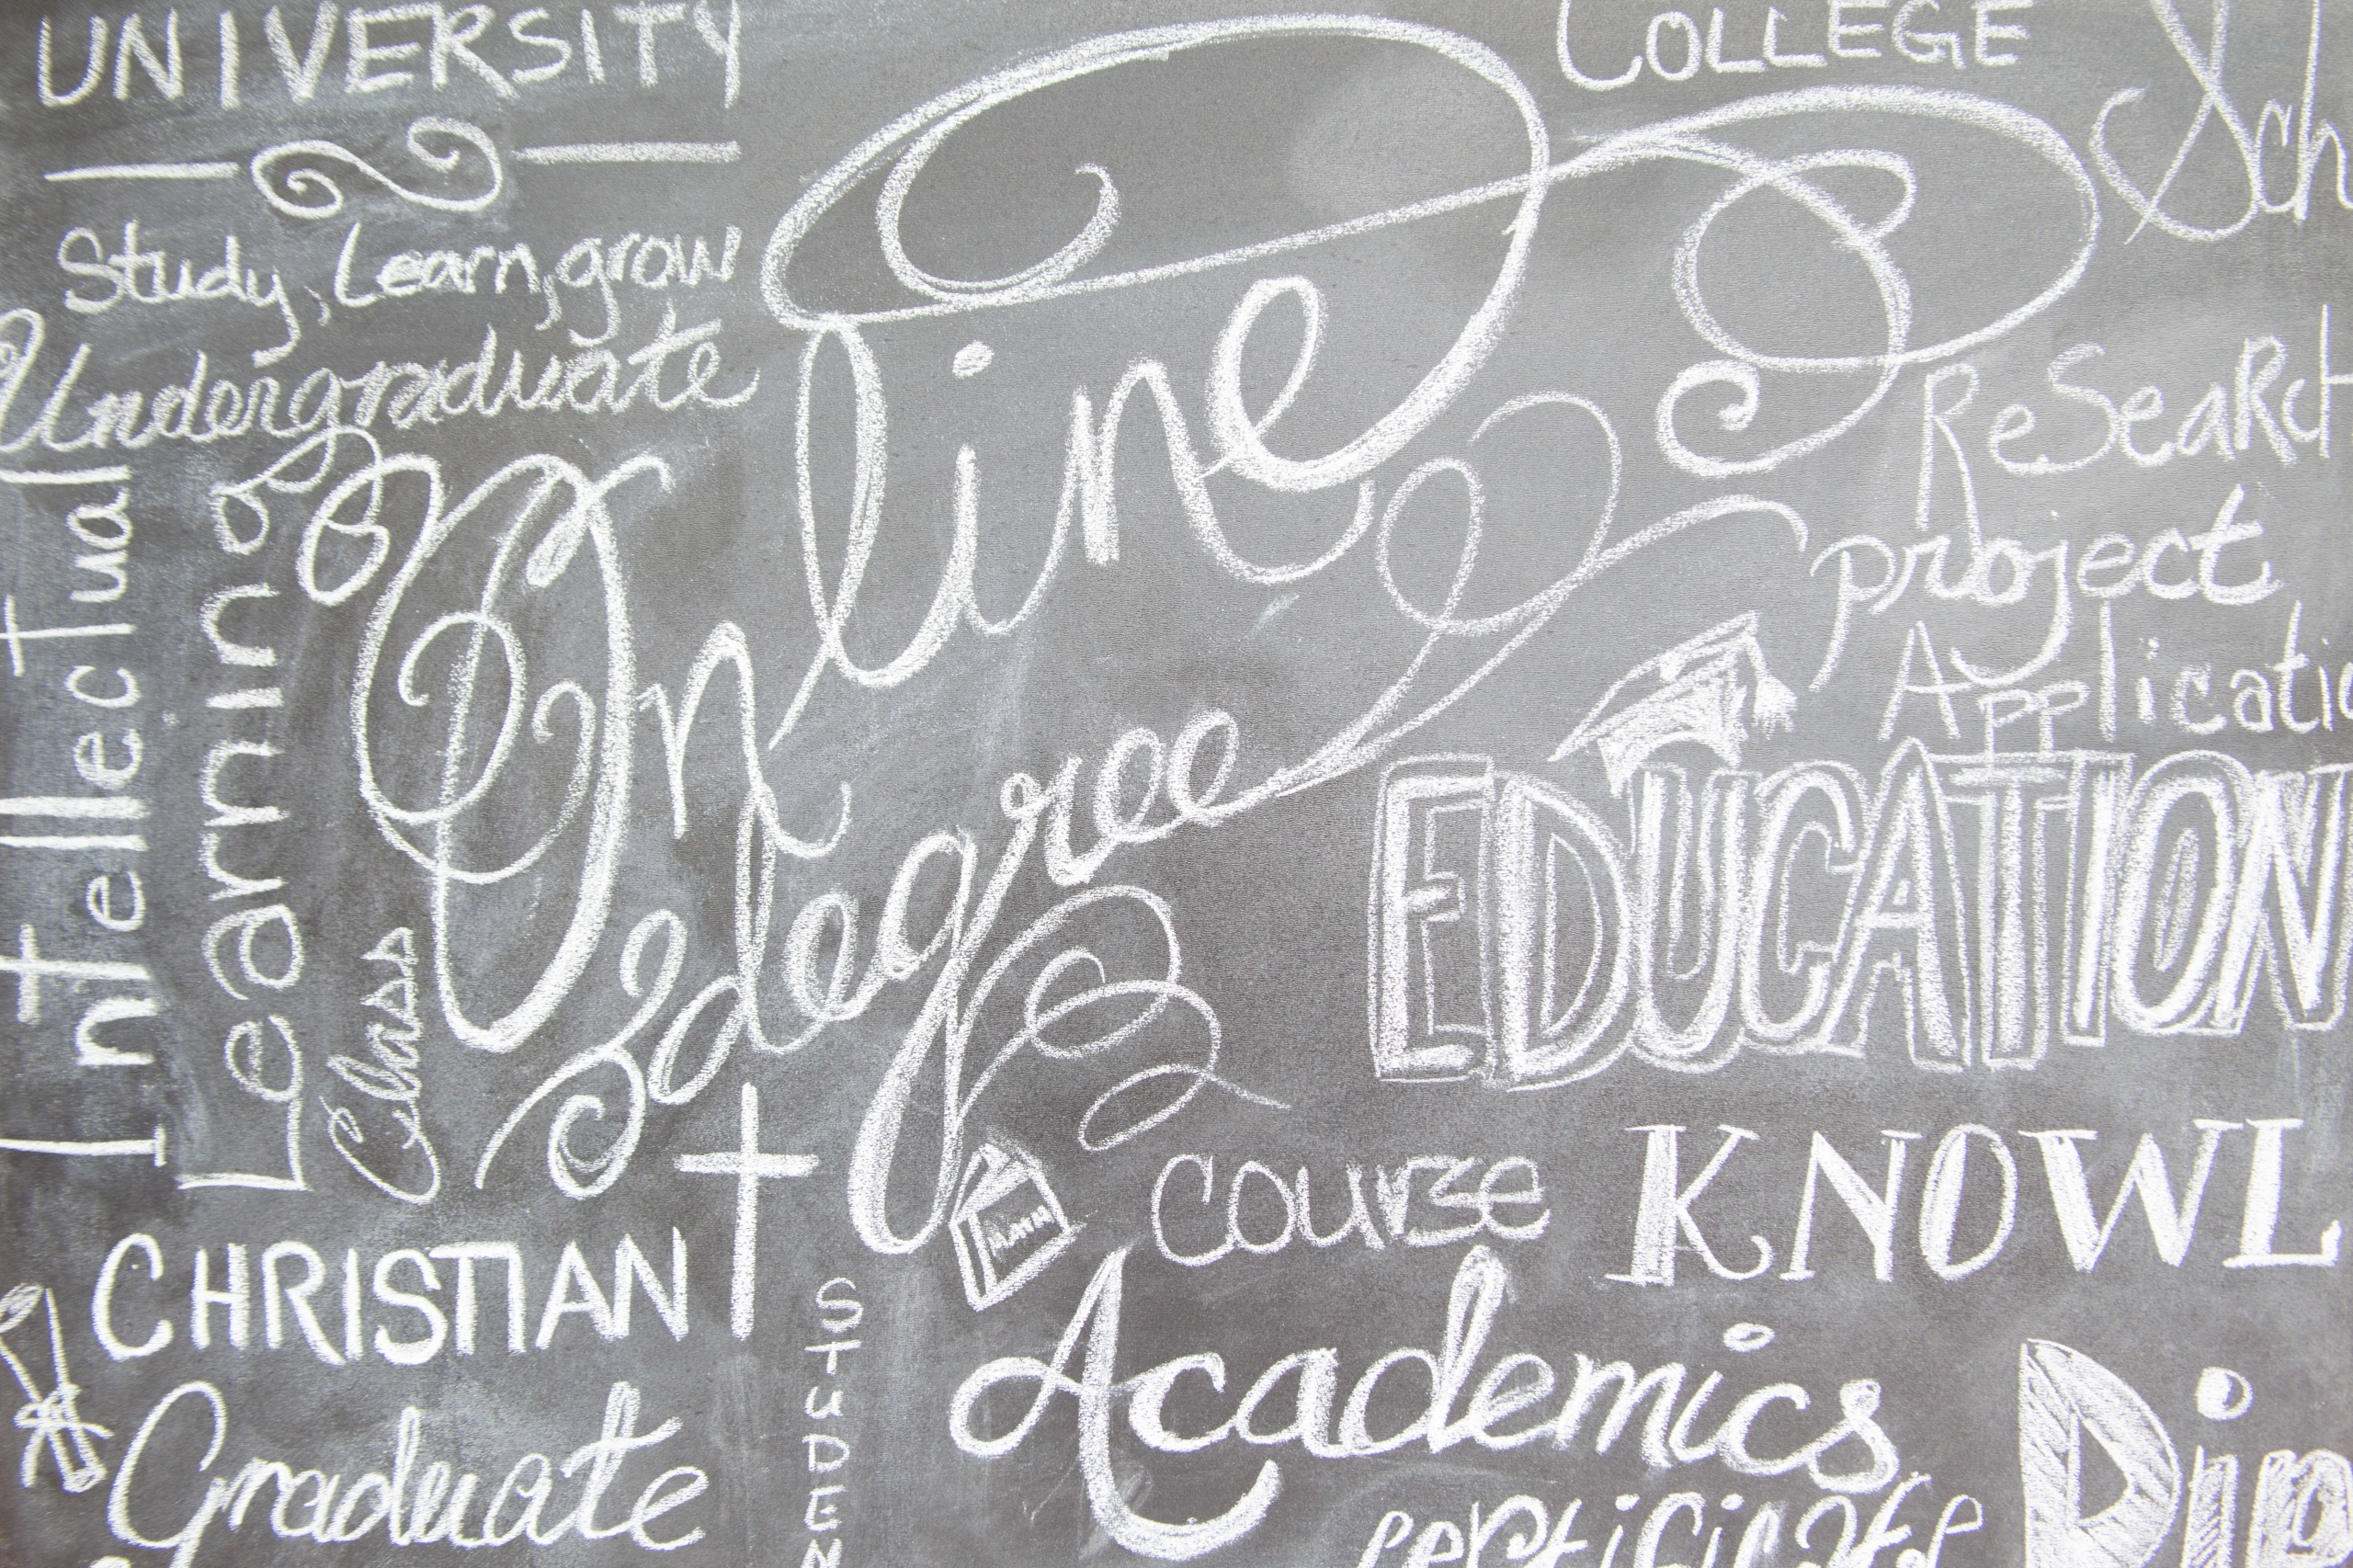 UNIVERSITY
COLLEGE
Sch
Study, Learn, grow
Undergraduate
Online
degree
ReSeaRch
project
Applicatio
Intellectual
Learning
Class
EDUCATION
course
KNOWL
CHRISTIAN
Math
STuDEN
Academics
Graduate
certificate
Dip